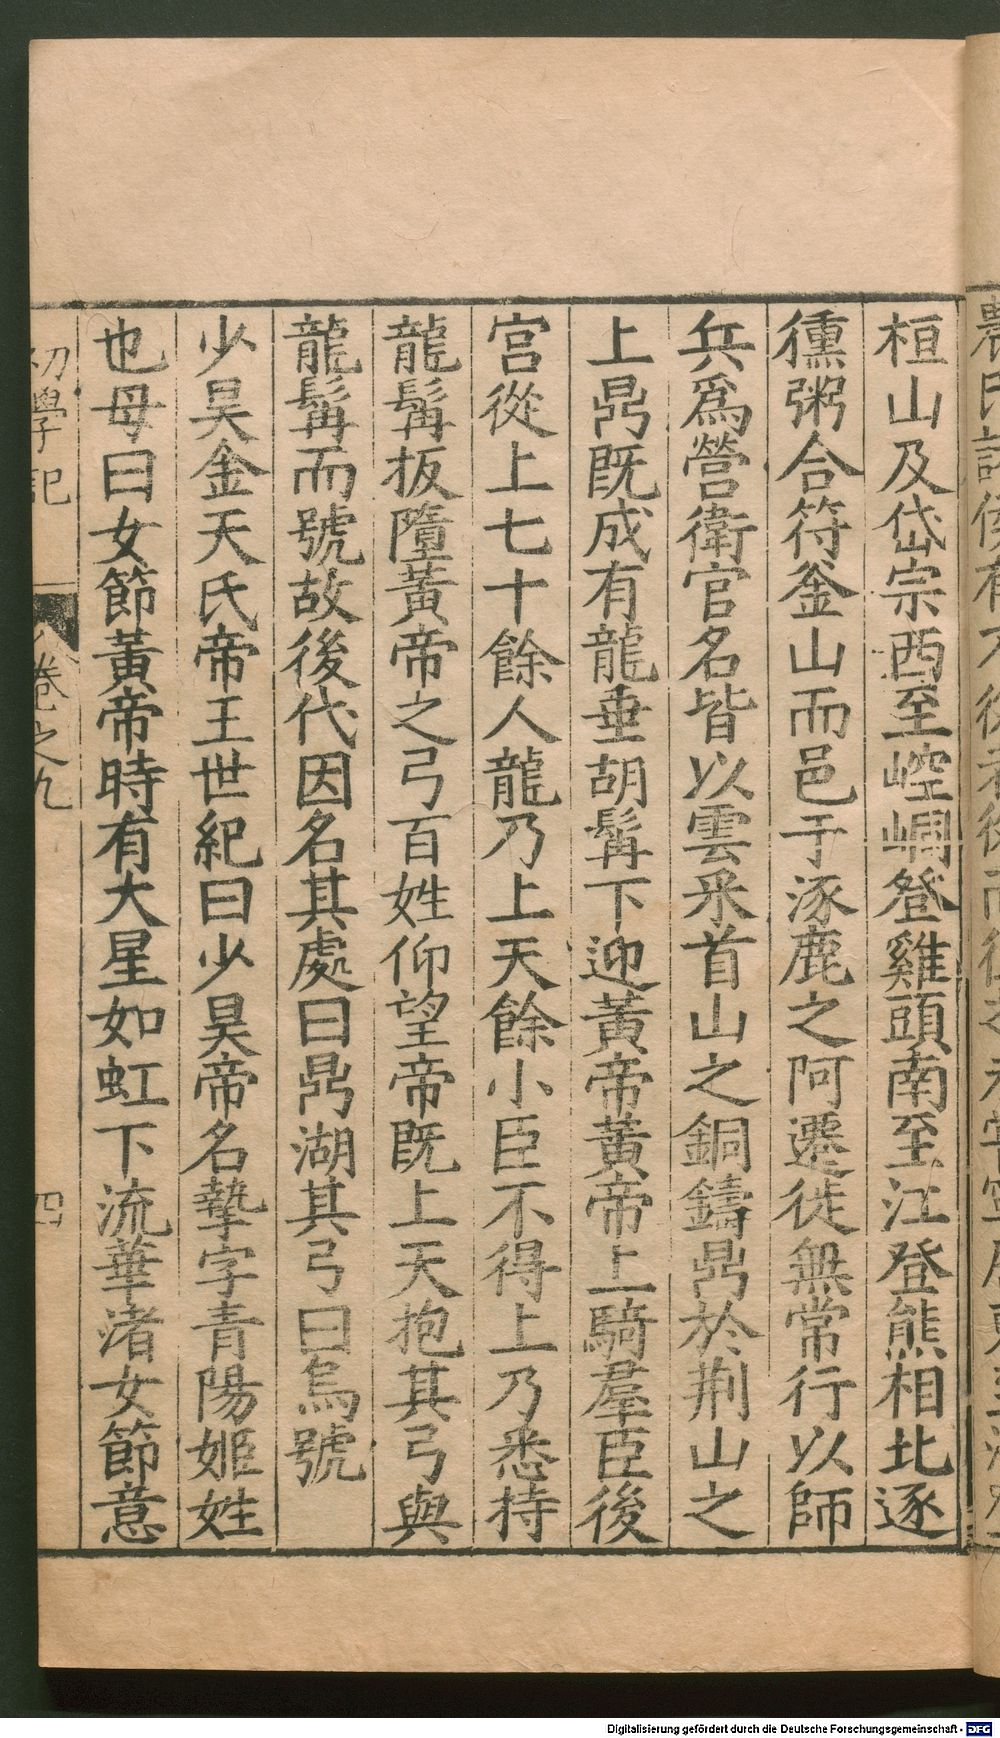 桓山及岱宗西至崆峒登雞頭南至江登熊相北逐
獯粥合符釜山而邑于涿鹿之阿遷徙無常行以師
兵爲營衛官名皆以雲采首山之銅鑄鼎於荆山之
上鼎既成有龍垂胡髯下迎黃帝黃帝上騎羣臣後
宮從上七十餘人龍乃上天餘小臣不得上乃悉持
龍髯扳墮黃帝之弓百姓仰望帝既上天抱其弓與
龍髯而號故後代因名其處曰鼎湖其弓曰烏號
少昊金天氏帝王世紀曰少昊帝名摯字青陽姬姓
也母曰女節黃帝時有大星如虹下流華渚女節意
初學記 卷之九 四
Digitalisierung gefördert durch die Deutsche Forschungsgemeinschaft - DFG